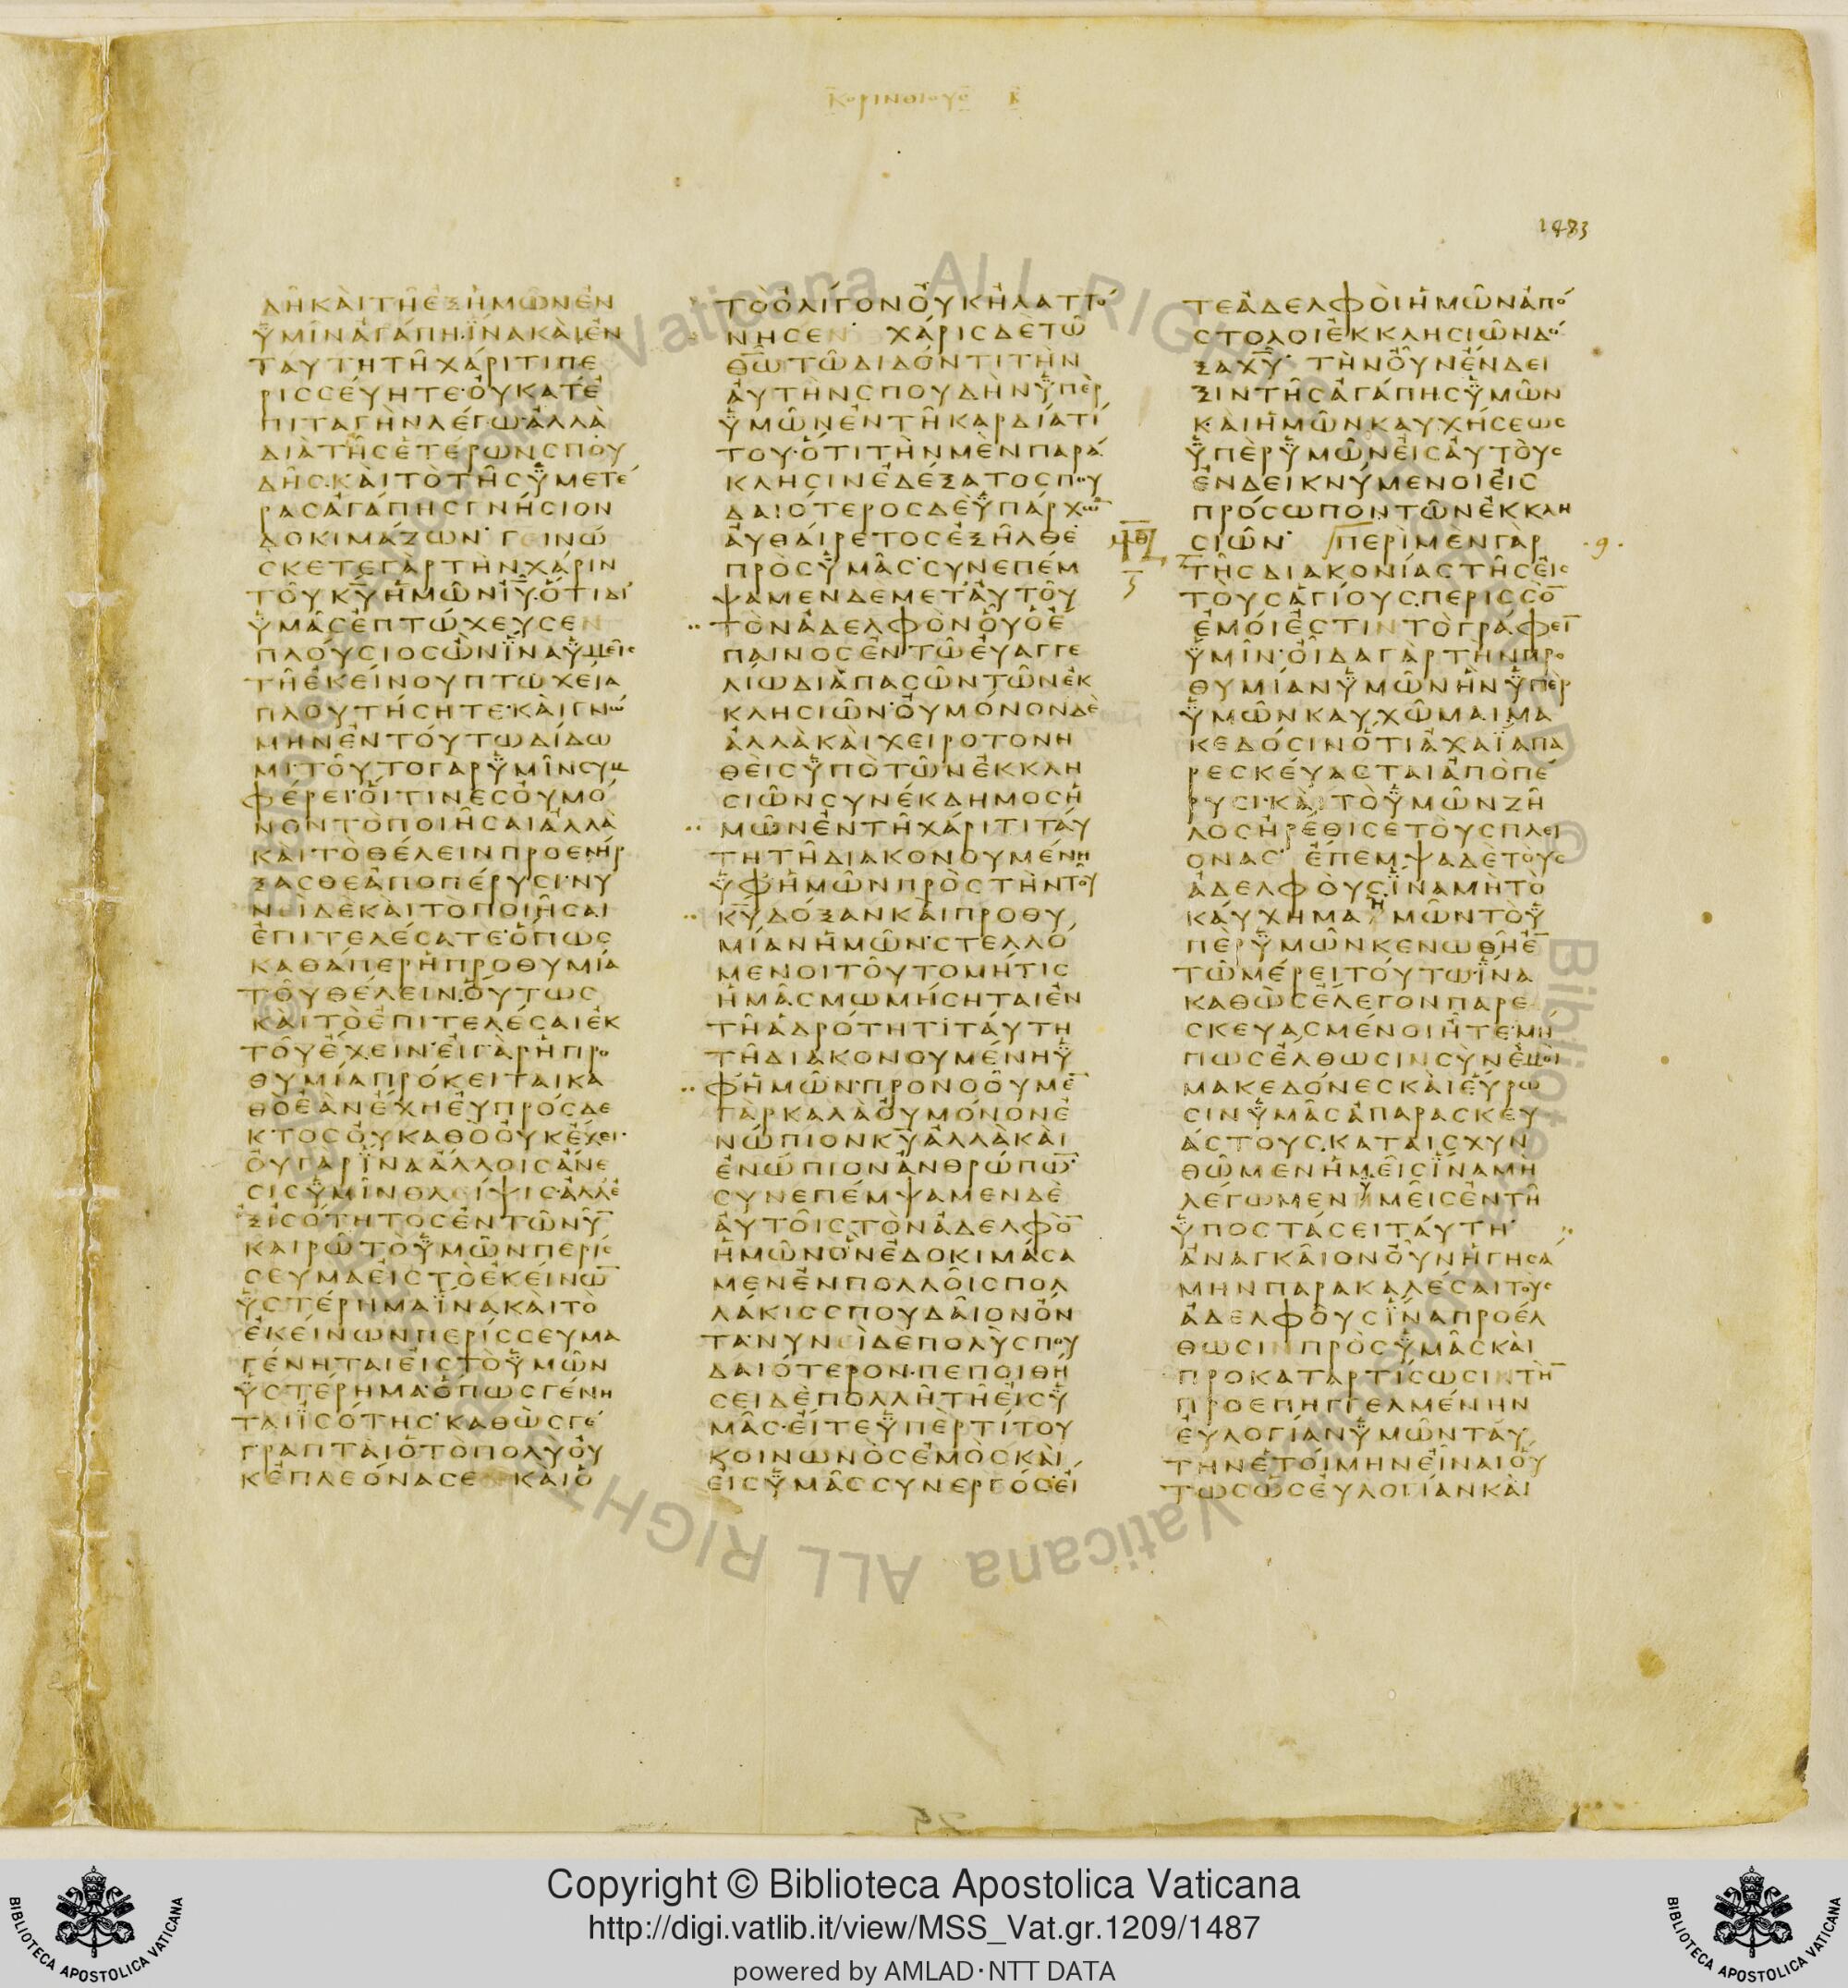 ΚΟΡΙΝΘΙΟΥΣ Β
1483
ΛΗΚΑΙΤΗΕΞΗΜΩΝΕΝ
ΫΜΙΝΑΓΑΠΗ·ΪΝΑΚΑΙΕΝ
ΤΑΥΤΗΤΗΧΑΡΙΤΙΠΕ
ΡΙϹϹΕΥΗΤΕ·ΟΥΚΑΤΕ
ΠΙΤΑΓΗΝΛΕΓΩ·ΑΛΛΑ
ΔΙΑΤΗϹΕΤΕΡΩΝϹΠΟΥ
ΔΗϹ·ΚΑΙΤΟΤΗϹΫΜΕΤΕ
ΡΑϹΑΓΑΠΗϹΓΝΗϹΙΟΝ
ΔΟΚΙΜΑΖΩΝ· ΓΕΙΝΩ
ϹΚΕΤΕΓΑΡΤΗΝΧΑΡΙΝ
ΤΟΥΚ̅Υ̅ΗΜΩΝΙ̅Υ̅·ΟΤΙΔΙ
ΫΜΑϹΕΠΤΩΧΕΥϹΕΝ
ΠΛΟΥϹΙΟϹΩΝΪΝΑΫΜΕΙϹ
ΤΗΕΚΕΙΝΟΥΠΤΩΧΕΙΑ
ΠΛΟΥΤΗϹΗΤΕ·ΚΑΙΓΝΩ
ΜΗΝΕΝΤΟΥΤΩΔΙΔΩ
ΜΙ·ΤΟΥΤΟΓΑΡΫΜΙΝϹΥΜ
ΦΕΡΕΙ·ΟΙΤΙΝΕϹΟΥΜΟ
ΝΟΝΤΟΠΟΙΗϹΑΙΑΛΛΑ
ΚΑΙΤΟΘΕΛΕΙΝΠΡΟΕΝΗΡ
ΞΑϹΘΕΑΠΟΠΕΡΥϹΙ·ΝΥ
ΝΕΙΔΕΚΑΙΤΟΠΟΙΗϹΑΙ
ΕΠΙΤΕΛΕϹΑΤΕ·ΟΠΩϹ
ΚΑΘΑΠΕΡΗΠΡΟΘΥΜΙΑ
ΤΟΥΘΕΛΕΙΝ·ΟΥΤΩϹ
ΚΑΙΤΟΕΠΙΤΕΛΕϹΑΙΕΚ
ΤΟΥΕΧΕΙΝ·ΕΙΓΑΡΗΠΡΟ
ΘΥΜΙΑΠΡΟΚΕΙΤΑΙΚΑ
ΘΟΕΑΝΕΧΗΕΥΠΡΟϹΔΕ
ΚΤΟϹΟΥΚΑΘΟΟΥΚΕΧΕΙ·
ΟΥΓΑΡΪΝΑΑΛΛΟΙϹΑΝΕ
ϹΙϹΫΜΙΝΘΛΕΙΨΙϹ·ΑΛΛΕ
ΞΙϹΟΤΗΤΟϹΕΝΤΩΝΥ̅
ΚΑΙΡΩΤΟΫΜΩΝΠΕΡΙϹ
ϹΕΥΜΑΕΙϹΤΟΕΚΕΙΝΩ̅
ΫϹΤΕΡΗΜΑΪΝΑΚΑΙΤΟ
ΕΚΕΙΝΩΝΠΕΡΙϹϹΕΥΜΑ
ΓΕΝΗΤΑΙΕΙϹΤΟΫΜΩΝ
ΫϹΤΕΡΗΜΑ·ΟΠΩϹΓΕΝΗ
ΤΑΙΪϹΟΤΗϹ·ΚΑΘΩϹΓΕ
ΓΡΑΠΤΑΙΟΤΟΠΟΛΥΟΥ
ΚΕΠΛΕΟΝΑϹΕ ΚΑΙΟ
ΤΟΟΛΙΓΟΝΟΥΚΗΛΑΤΤΟ
ΝΗϹΕΝ· ΧΑΡΙϹΔΕΤΩ
Θ̅Ω̅ΤΩΔΙΔΟΝΤΙΤΗΝ
ΑΥΤΗΝϹΠΟΥΔΗΝΫΠΕΡ
ΫΜΩΝΕΝΤΗΚΑΡΔΙΑΤΙ
ΤΟΥ·ΟΤΙΤΗΝΜΕΝΠΑΡΑ
ΚΛΗϹΙΝΕΔΕΞΑΤΟϹΠΟΥ
ΔΑΙΟΤΕΡΟϹΔΕΫΠΑΡΧΩ̅
ΑΥΘΑΙΡΕΤΟϹΕΞΗΛΘΕ
ΠΡΟϹΫΜΑϹ·ϹΥΝΕΠΕΜ
ΨΑΜΕΝΔΕΜΕΤΑΥΤΟΥ
ΤΟΝΑΔΕΛΦΟΝΟΥΟΕ
ΠΑΙΝΟϹΕΝΤΩΕΥΑΓΓΕ
ΛΙΩΔΙΑΠΑϹΩΝΤΩΝΕΚ
ΚΛΗϹΙΩΝ·ΟΥΜΟΝΟΝΔΕ
ΑΛΛΑΚΑΙΧΕΙΡΟΤΟΝΗ
ΘΕΙϹΫΠΟΤΩΝΕΚΚΛΗ
ϹΙΩΝϹΥΝΕΚΔΗΜΟϹΗ
ΜΩΝΕΝΤΗΧΑΡΙΤΙΤΑΥ
ΤΗΤΗΔΙΑΚΟΝΟΥΜΕΝΗ
ΫΦΗΜΩΝΠΡΟϹΤΗΝΤΟΥ
Κ̅Υ̅ΔΟΞΑΝΚΑΙΠΡΟΘΥ
ΜΙΑΝΗΜΩΝ·ϹΤΕΛΛΟ
ΜΕΝΟΙΤΟΥΤΟΜΗΤΙϹ
ΗΜΑϹΜΩΜΗϹΗΤΑΙΕΝ
ΤΗΑΔΡΟΤΗΤΙΤΑΥΤΗ
ΤΗΔΙΑΚΟΝΟΥΜΕΝΗΫ
ΦΗΜΩΝ·ΠΡΟΝΟΟΥΜΕ̅
ΓΑΡΚΑΛΑΟΥΜΟΝΟΝΕ
ΝΩΠΙΟΝΚ̅Υ̅ΑΛΛΑΚΑΙ
ΕΝΩΠΙΟΝΑΝΘΡΩΠΩ̅·
ϹΥΝΕΠΕΜΨΑΜΕΝΔΕ
ΑΥΤΟΙϹΤΟΝΑΔΕΛΦΟ̅
ΗΜΩΝΟΝΕΔΟΚΙΜΑϹΑ
ΜΕΝΕΝΠΟΛΛΟΙϹΠΟΛ
ΛΑΚΙϹϹΠΟΥΔΑΙΟΝΟΝ
ΤΑ·ΝΥΝΕΙΔΕΠΟΛΥϹΠΟΥ
ΔΑΙΟΤΕΡΟΝ·ΠΕΠΟΙΘΗ
ϹΕΙΔΕΠΟΛΛΗΤΗΕΙϹΫ
ΜΑϹ·ΕΙΤΕΫΠΕΡΤΙΤΟΥ
ΚΟΙΝΩΝΟϹΕΜΟϹΚΑΙ
ΕΙϹΫΜΑϹϹΥΝΕΡΓΟϹ·ΕΙ
ΤΕΑΔΕΛΦΟΙΗΜΩΝΑΠΟ
ϹΤΟΛΟΙΕΚΚΛΗϹΙΩΝΔΟ
ΞΑΧ̅Υ̅· ΤΗΝΟΥΝΕΝΔΕΙ
ΞΙΝΤΗϹΑΓΑΠΗϹΫΜΩΝ
ΚΑΙΗΜΩΝΚΑΥΧΗϹΕΩϹ
ΫΠΕΡΫΜΩΝΕΙϹΑΥΤΟΥϹ
ΕΝΔΕΙΚΝΥΜΕΝΟΙΕΙϹ
ΠΡΟϹΩΠΟΝΤΩΝΕΚΚΛΗ
ϹΙΩΝ· ΠΕΡΙΜΕΝΓΑΡ
ΤΗϹΔΙΑΚΟΝΙΑϹΤΗϹΕΙϹ
ΤΟΥϹΑΓΙΟΥϹ·ΠΕΡΙϹϹΟ̅
ΕΜΟΙΕϹΤΙΝΤΟΓΡΑΦΕΙ̅
ΫΜΙΝ·ΟΙΔΑΓΑΡΤΗΝΠΡΟ
ΘΥΜΙΑΝΫΜΩΝΗΝΫΠΕΡ
ΫΜΩΝΚΑΥΧΩΜΑΙΜΑ
ΚΕΔΟϹΙΝΟΤΙΑΧΑΪΑΠΑ
ΡΕϹΚΕΥΑϹΤΑΙΑΠΟΠΕ
ΡΥϹΙ·ΚΑΙΤΟΫΜΩΝΖΗ
ΛΟϹΗΡΕΘΙϹΕΤΟΥϹΠΛΕΙ
ΟΝΑϹ· ΕΠΕΜΨΑΔΕΤΟΥϹ
ΑΔΕΛΦΟΥϹ·ΪΝΑΜΗΤΟ
ΚΑΥΧΗΜΑΗΜΩΝΤΟΫ
ΠΕΡΫΜΩΝΚΕΝΩΘΗΕ̅
ΤΩΜΕΡΕΙΤΟΥΤΩ·ΪΝΑ
ΚΑΘΩϹΕΛΕΓΟΝΠΑΡΕ
ϹΚΕΥΑϹΜΕΝΟΙΗΤΕ·ΜΗ
ΠΩϹΕΛΘΩϹΙΝϹΥΝΕΜΟΙ
ΜΑΚΕΔΟΝΕϹΚΑΙΕΥΡΩ
ϹΙΝΫΜΑϹΑΠΑΡΑϹΚΕΥ
ΑϹΤΟΥϹ·ΚΑΤΑΙϹΧΥΝ
ΘΩΜΕΝΗΜΕΙϹΪΝΑΜΗ
ΛΕΓΩΜΕΝΥΜΕΙϹΕΝΤΗ
ΫΠΟϹΤΑϹΕΙΤΑΥΤΗ·
ΑΝΑΓΚΑΙΟΝΟΥΝΗΓΗϹΑ
ΜΗΝΠΑΡΑΚΑΛΕϹΑΙΤΟΥϹ
ΑΔΕΛΦΟΥϹΪΝΑΠΡΟΕΛ
ΘΩϹΙΝΠΡΟϹΫΜΑϹΚΑΙ
ΠΡΟΚΑΤΑΡΤΙϹΩϹΙΝΤΗ̅
ΠΡΟΕΠΗΓΓΕΛΜΕΝΗΝ
ΕΥΛΟΓΙΑΝΫΜΩΝΤΑΥ
ΤΗΝΕΤΟΙΜΗΝΕΙΝΑΙΟΥ
ΤΩϹΩϹΕΥΛΟΓΙΑΝΚΑΙ
Vaticana ALL RIGHT © Bibliotec
Copyright © Biblioteca Apostolica Vaticana
http://digi.vatlib.it/view/MSS_Vat.gr.1209/1487
powered by AMLAD·NTT DATA
BIBLIOTECA APOSTOLICA VATICANA
BIBLIOTECA APOSTOLICA VATICANA